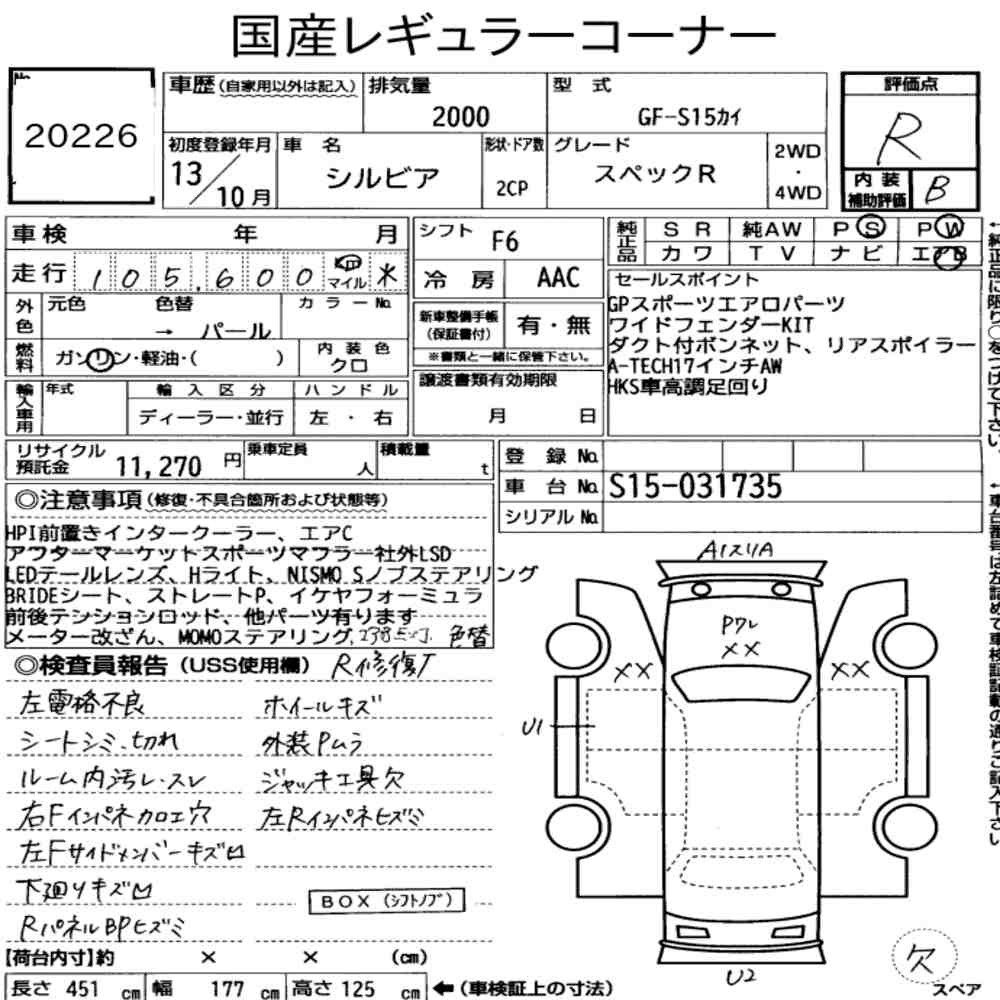 国産レギュラーコーナー
No.
20226
車歴(自家用以外は記入)
排気量
2000
型 式
GF-S15カイ
評価点
R
内装補助評価
B
初度登録年月
13/10月
車 名
シルビア
形状・ドア数
2CP
グレード
スペックR
2WD
・
4WD
車検 年 月
走行 105,600 km マイル
外色
元色 色替 カラーNo.
→ パール
燃料
ガソリン・軽油・( )
内装色
クロ
輸入車用
年式
輸入区分
ディーラー・並行
ハンドル
左 ・ 右
シフト F6
冷房 AAC
新車整備手帳
(保証書付)
有・無
※書類と一緒に保管下さい。
譲渡書類有効期限
月 日
純正品
SR 純AW PS PW
カワ TV ナビ エアB
セールスポイント
GPスポーツエアロパーツ
ワイドフェンダーKIT
ダクト付ボンネット、リアスポイラー
A-TECH17インチAW
HKS車高調足回り
リサイクル預託金 11,270 円
乗車定員 人
積載量 t
登録 No.
車台 No. S15-031735
シリアル No.
◎注意事項(修復・不具合箇所および状態等)
HPI前置きインタークーラー、エアC
アフターマーケットスポーツマフラー社外LSD
LEDテールレンズ、Hライト、NISMO Sノブステアリング
BRIDEシート、ストレートP、イケヤフォーミュラ
前後テンションロッド、他パーツ有ります
メーター改ざん、MOMOステアリング, 色替
◎検査員報告(USS使用欄) R修復歴
左電格不良
シートシミ、切れ
ルーム内汚レ・スレ
右Fインパネカロエ穴
左Fサイドメンバーキズ凹
下廻りキズ凹
RパネルBPヒズミ
ホイールキズ
外装Pムラ
ジャッキ工具欠
左Rインパネヒズミ
BOX (シフトノブ)
A1スリA
Pワレ
××
××
××
U1
U2
欠
スペア
【荷台内寸】約 × × (cm)
長さ 451 cm 幅 177 cm 高さ 125 cm ←(車検証上の寸法)
←純正品に限り○をつけて下さい。
←車台番号は左詰めで車検証記載の通りご記入下さい